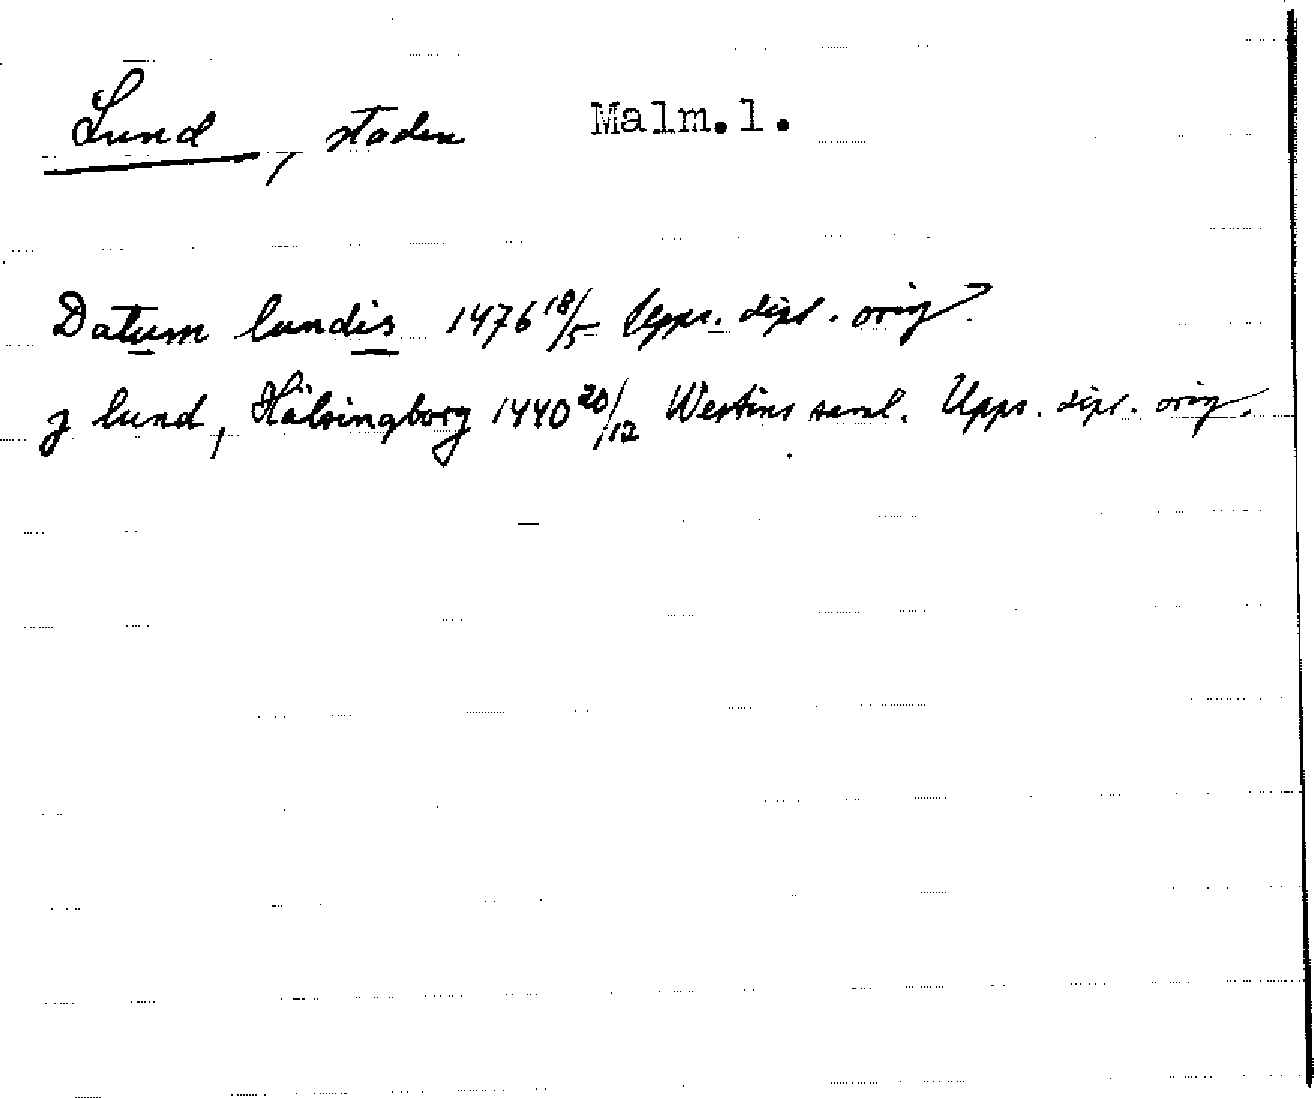 Lund, staden Malm.l.
Datum lundis 1476 18/5 Upps. dipl. orig.
j lund, Hälsingborg 1440 20/12 Westins saml. Upps. dipl. orig.